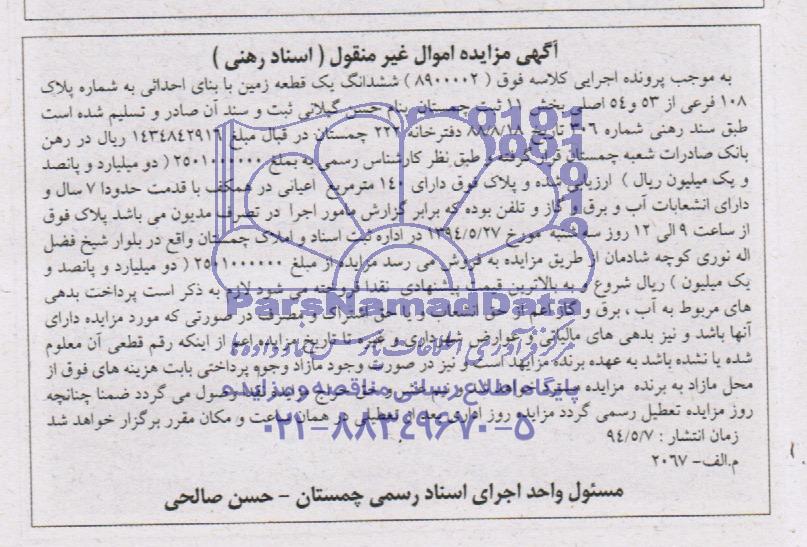 آگهی مزایده اموال غیر منقول ( اسناد رهنی )
به موجب پرونده اجرایی کلاسه فوق ( ۸۹۰۰۰۰۲ ) ششدانگ یک قطعه زمین با بنای احداثی به شماره پلاک
۱۰۸ فرعی از ۵۳ و۵٤ اصلی بخش ۱۱ ثبت چمستان بنام حسن گیلانی ثبت و سند آن صادر و تسلیم شده است
طبق سند رهنی شماره ۳۰۶ تاریخ ۸۸/۸/۱۸ دفترخانه ۲۲۲ چمستان در قبال مبلغ ۱٤۳٤۸٤۲۹۱۶ ریال در رهن
بانک صادرات شعبه چمستان قرار گرفته و طبق نظر کارشناس رسمی به بمبلغ ۲۵۰۱۰۰۰۰۰۰ ( دو میلیارد و پانصد
و یک میلیون ریال ) ارزیابی شده و پلاک فوق دارای ۱٤۰ مترمربع اعیانی در همکف با قدمت حدودا ۷ سال و
دارای انشعابات آب و برق و گاز و تلفن بوده که برابر گزارش مامور اجرا در تصرف مدیون می باشد پلاک فوق
از ساعت ۹ الی ۱۲ روز سه شنبه مورخ ۱۳۹٤/۵/۲۷ در اداره ثبت اسناد و املاک چمستان واقع در بلوار شیخ فضل
اله نوری کوچه شادمان از طریق مزایده به فروش می رسد مزایده از مبلغ ۲۵۰۱۰۰۰۰۰۰ ( دو میلیارد و پانصد و
یک میلیون ) ریال شروع و به بالاترین قیمت پیشنهادی نقدا فروخته می شود لازم به ذکر است پرداخت بدهی
های مربوط به آب ، برق و گاز اعم از حق انشعاب و یا حق اشتراک و مصرف در صورتی که مورد مزایده دارای
آنها باشد و نیز بدهی های مالیاتی و عوارض شهرداری و غیره تا تاریخ مزایده اعم از اینکه رقم قطعی آن معلوم
شده یا نشده باشد به عهده برنده مزایده است و نیز در صورت وجود مازاد وجوه پرداختی بابت هزینه های فوق از
محل مازاد به برنده مزایده مسترد خواهد شد و نیم عشر و حق حراج نقدا وصول می گردد ضمنا چنانچه
روز مزایده تعطیل رسمی گردد مزایده روز اداری بعد از تعطیلی در همان ساعت و مکان مقرر برگزار خواهد شد
زمان انتشار : ۹٤/۵/۷
م.الف- ۲۰۶۷
مسئول واحد اجرای اسناد رسمی چمستان - حسن صالحی
ParsNamadData
پایگاه اطلاع رسانی مناقصه و مزایده
۰۲۱-۸۸۳٤۹۶۷۰-۵